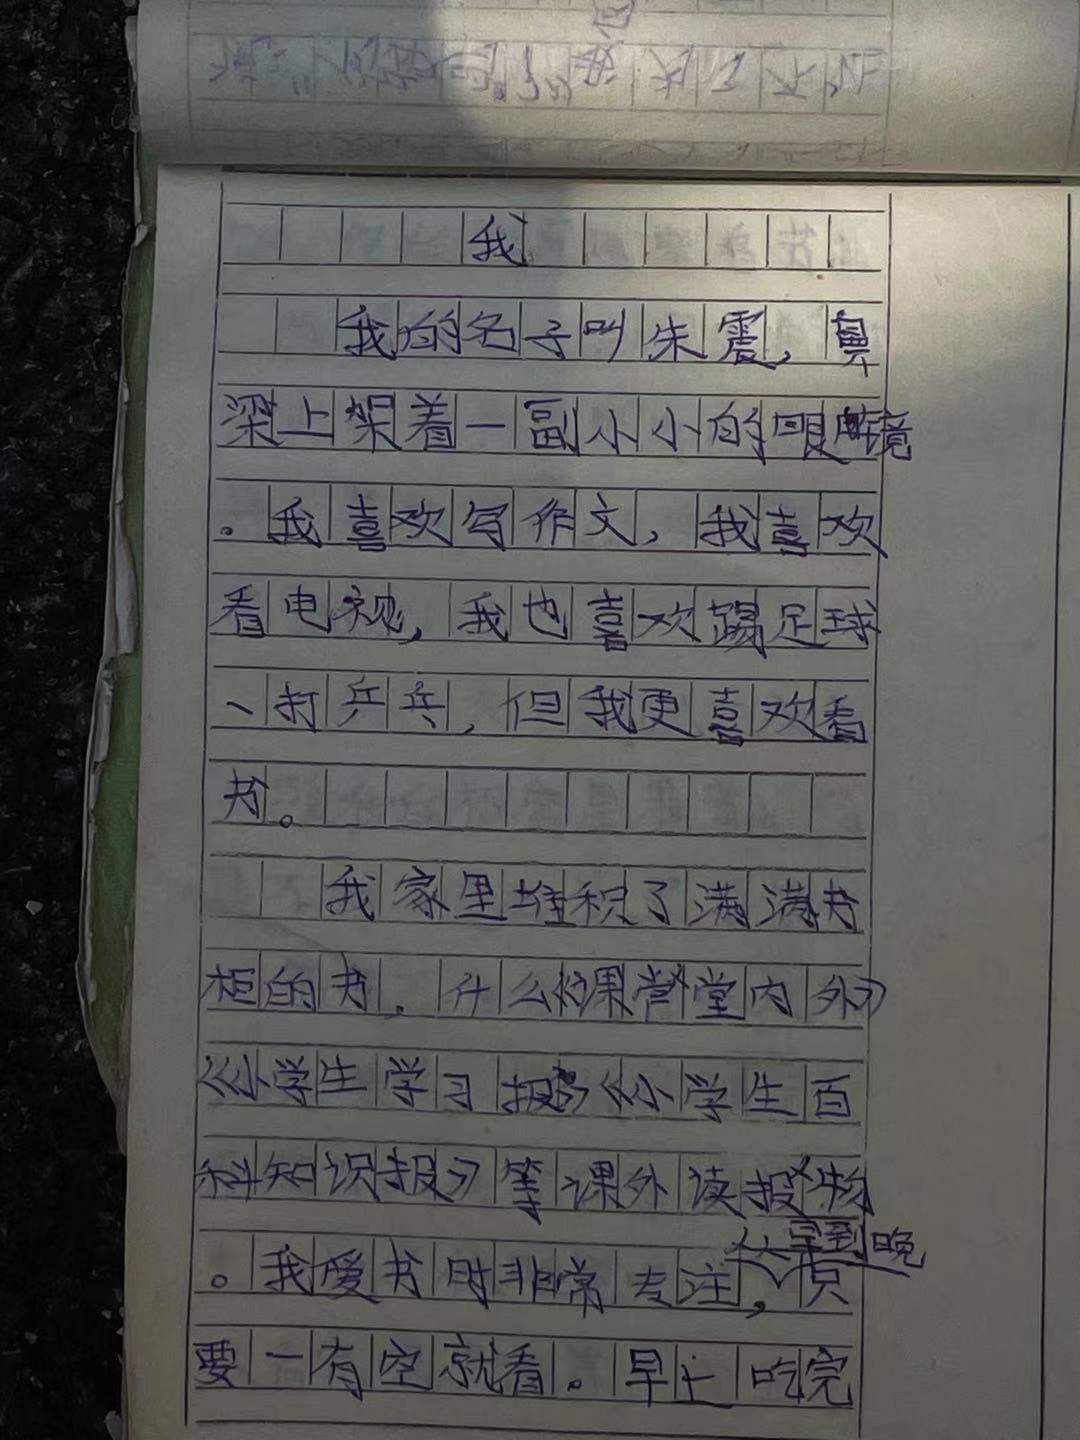 我
我的名子叫朱震，鼻
梁上架着一副小小的眼镜
。我喜欢写作文，我喜欢
看电视，我也喜欢踢足球
、打乒乓，但我更喜欢看
书。
我家里堆积了满满书
柜的书．什么《课堂内外》
《小学生学习报》《小学生百
科知识报》等课外读物
从早到晚
。我爱书时非常专注，只
要一有空就看。早上吃完